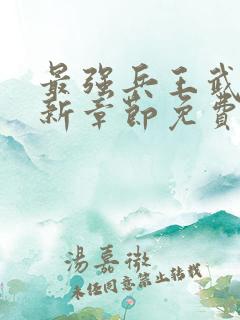 最强兵王武
新章节免费
湯嘉微
未任同意禁止转载